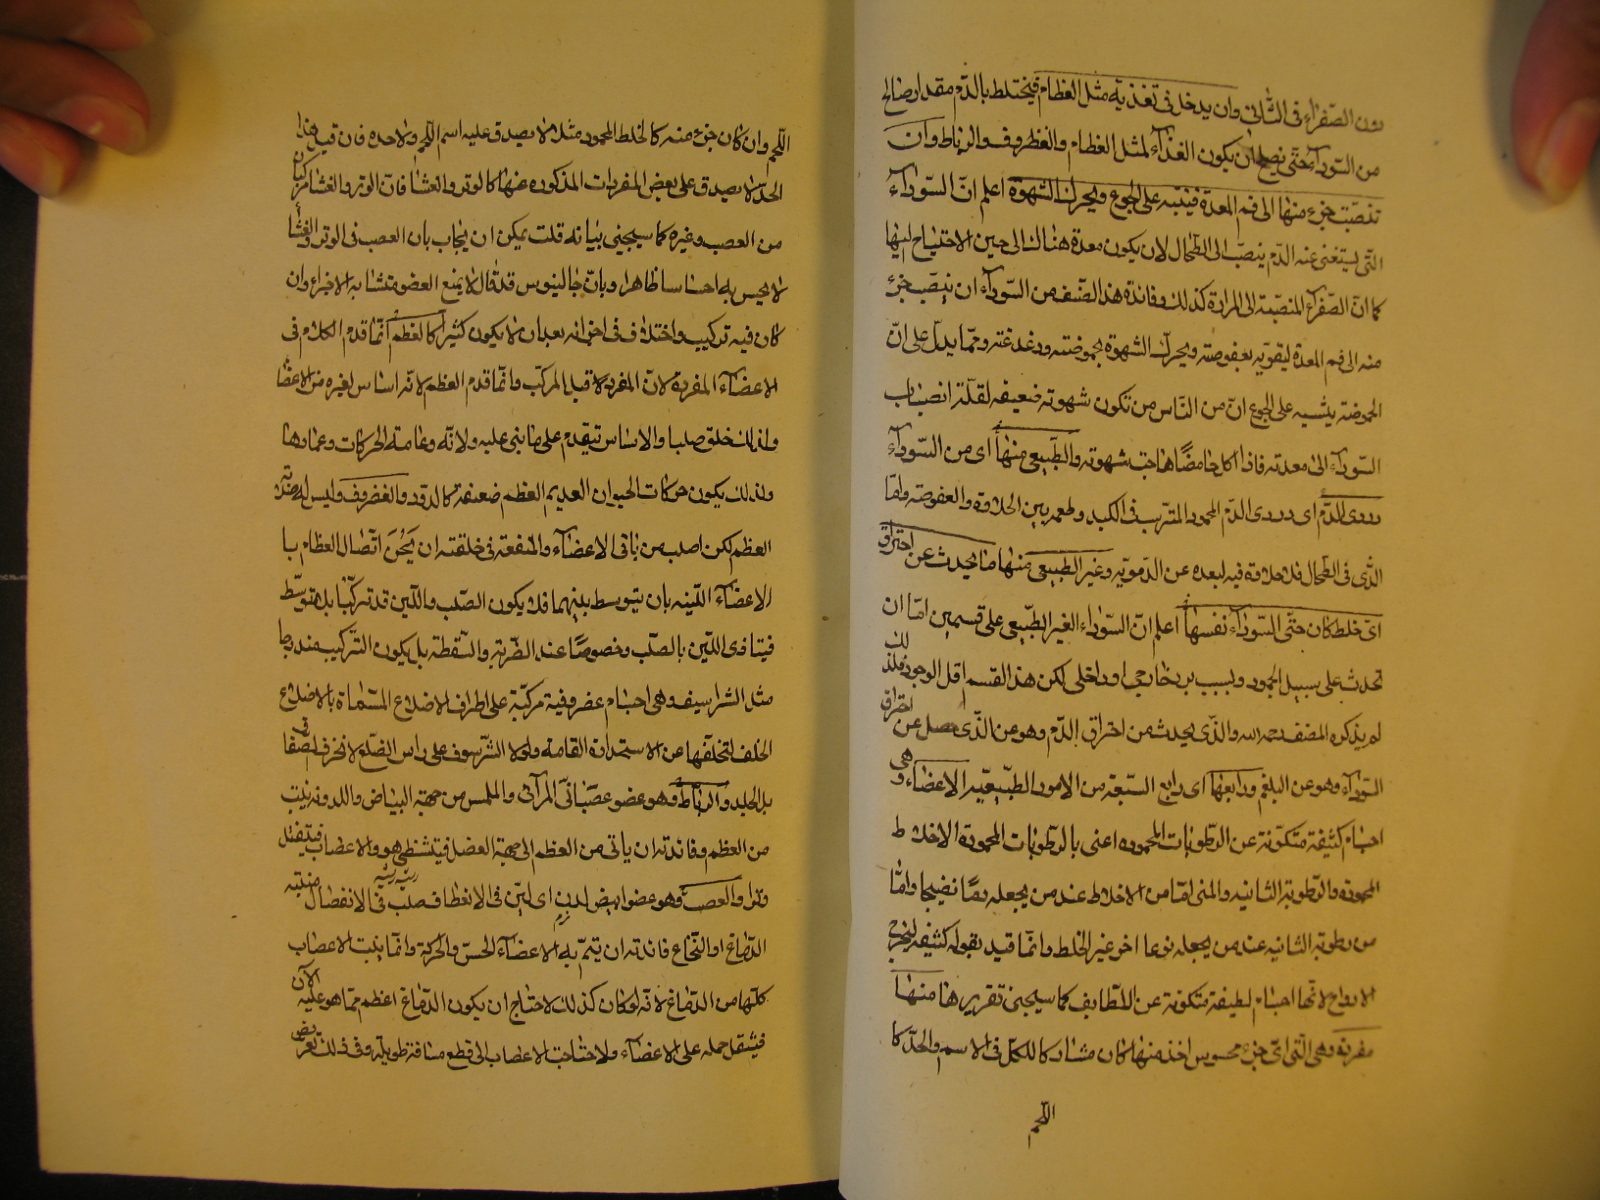 دون الصّفراء فى الثّانى وان يدخل فى تغذيه مثل العظام فيختلط بالدّم مقدار صالح
من السّوداء حتّى يصلح ان يكون الغذاء لمثل العظام والغظروف والرباط وان
تنصّب جزء منها الى فم المعدة فينبه على الجوع ويحرك الشهوة اعلم انّ السّوداء
التّى يستغنى عنه الدّم ينصبّ الى الطّحال لان يكون معدة هناك الى حين الاحتياج اليها
كما انّ الصّفراء المنصبّة الى المرارة كذلك وفائدة هذا الصّنف من السّوداء ان ينصّب جزء
منه الى فم المعدة ليقويه بعفوصته ويحرك الشهوة بحموضته ودغدغته وممّا يدلّ على انّ
الحموضة ينبه على الجوع انّ من النّاس من تكون شهوته ضعيفه لقلّة انصباب
السّوداء الى معدته فاذا اكل حامضًا هاجت شهوته والطّبيعى منها اى من السّوداء
دردى الدّم اى دردى الدّم المحمود المترسب فى الكبد وطعمه بين الحلاوة والعفوصة وامّا
الّذى فى الطحال فلا حلاوة فيه لبعده عن الدّمويّه وغير الطّبيعى منها ما يحدث عن احتراق
اىّ خلط كان حتّى السّوداء نفسها اعلم انّ السّوداء الغير الطّبيعى على قسمين امّا ان
تحدث على سبيل الجمود وبسبب برد خارجى او داخلى لكن هذا القسم اقل الوجود فلذلك
لم يذكره المصنف رحمه الله والّذى يحدث من احتراق الدّم وهو عن الّذى حصل عن احتراق
السّوداء وهو عن البلغم ورابعها اى رابع السّبعة من الامور الطّبيعيّه الاعضاء وهى
اجسام كثيفة متكوّنة عن الرّطوبات المحموده اعنى بالرّطوبات المحمودة الاخلاط
المحمودة والرّطوبة الثانيه والمنى امّا من الاخلاط عند من يجعله دمًا نضيجا وامّا
من رطوبة الثانيه عند من يجعله نوعا اخر غير الخلط وانّما قيد بقوله كثيفه ليخرج
الارواح لانّها اجسام لطيفة متكونة عن اللّطايف كما سيجئ تقريرها منها
مفردة وهى التّى اىّ جزء محسوس اخذ منها كان مشاركا للكلّ فى الاسم والحدّ كا
اللّحم
اللّحم وان كان جزء منه كالخلط المحمود مثلا لا يصدق عليه اسم اللّحم ولا حده فان قيل هذا
الحدّ لا يصدق على بعض المفردات المذكوره عنها كالوتر والغشا فانّ الوتر والغشا مركبان
من العصب وغيره كما سيجيئ بيانه قلت يمكن ان يجاب بان العصب فى الوتر والغشا
لا يحس به احساسا ظاهرا وبانّ جالينوس قد قال لا يمنع العضو متشابه الاجزاء وان
كان فيه تركيب واختلاف فى اجزائه بعد ان لا يكون كثيرا كالعظم انّما قدم الكلام فى
الاعضاء المفردة لانّ المفرد قبل المركّب وانّما قدم العظم لانّه اساس لغيره من الاعضا
ولذلك خلق صلبا والاساس يتقدم على ما بنى عليه ولانّه دعامة الحركات وعمادها
ولذلك يكون حركات الحيوان العديم العظم ضعيفة كالدود والغضروف وليس له صلابة
العظم لكن اصلب من باقى الاعضاء والمنفعة فى خلقته ان يَحُسن اتّصال العظام با
الاعضاء اللّينه بان يتوسط بينهما فلا يكون الصّلب واللّين قد تركّبا بلا متوسّط
فيتاذى اللّين بالصّلب وخصوصًا عند الضّربة والسّقطة بل يكون التّركيب مندرجا
مثل الشراسيف وهى اجسام غضروفية مركبّة على اطراف الاضلاع المسّماة بالاضلاع
الخلف لتخلّفها عن الاستدارة القامة ولولا الشّرسوف على راس الضّلع لانخرق الصّفاق
بل الجلد والرباط وهو عضو عصبانىّ المرآىٔ والملمس من جهة البياض واللدونه ينبت
من العظم وفائدته ان ياتى من العظم الى جهة العضل فيتشظى هو والاعصاب فيتفتل
وترا والعصب وهو عضو ابيض لدن اى ليّن فى الانعطاف صلب فى الانفصال منبته
الدّماغ او النّخاع فائدته ان يتمّ به الاعضاء الحسّ والحركة وانّما ينبت الاعصاب
كلّها من الدّماغ لانّه لو كان كذلك لاحتاج ان يكون الدّماغ اعظم ممّا هو عليه الآن
فيثقل حمله على الاعضاء ولاحتاجت الاعصاب الى قطع مسافة طويلة وفى ذلك تعريض